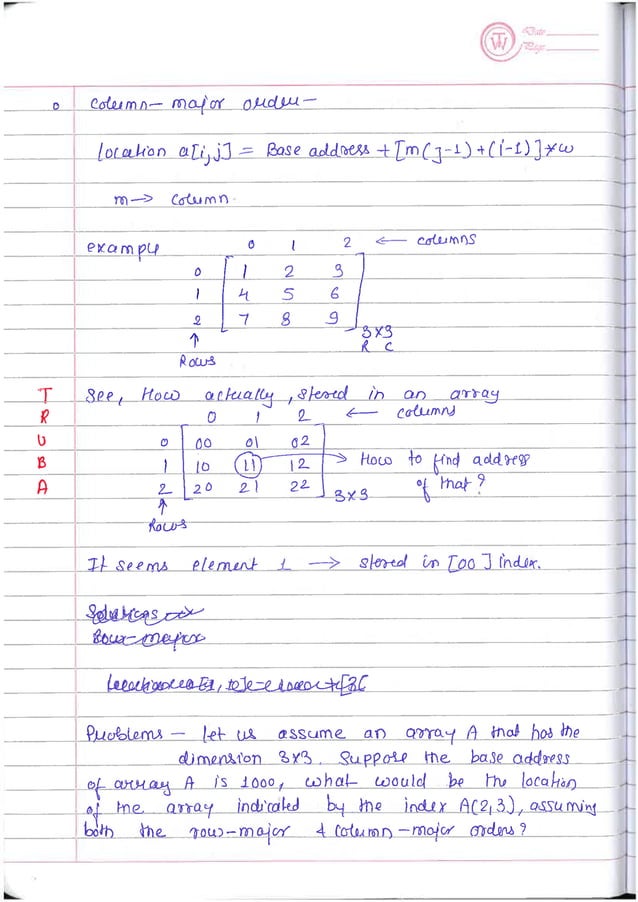 Date
Page
TW
o Column-major order-
location a[i,j] = Base address + [m(j-1)+(i-1)]*w
m -> column.
example 0 1 2 <- columns
0 1 2 3
1 4 5 6
2 7 8 9
3x3
↑ R C
Rows
T See, How actually, stored in an array
R 0 1 2 <- columns
U 0 00 01 02
B 1 10 11 12 -> How to find address
A 2 20 21 22 3x3 of that?
↑
Rows
It seems element 1 -> stored in [00] index.
Row-major
Problems - let us assume an array A that has the
dimension 3x3. Suppose the base address
of array A is 1000, what would be the location
of the array indicated by the index A(2,3), assuming
both the row-major & column-major orders?